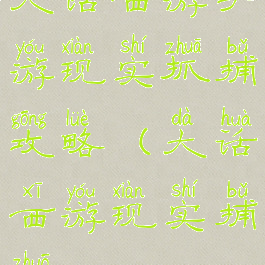 大话西游
yóu xiàn shí zhuō bǔ
游现实抓捕
gōng lüè dà huà
攻略（大话
xī yóu xiàn shí bǔ
西游现实捕
zhuō